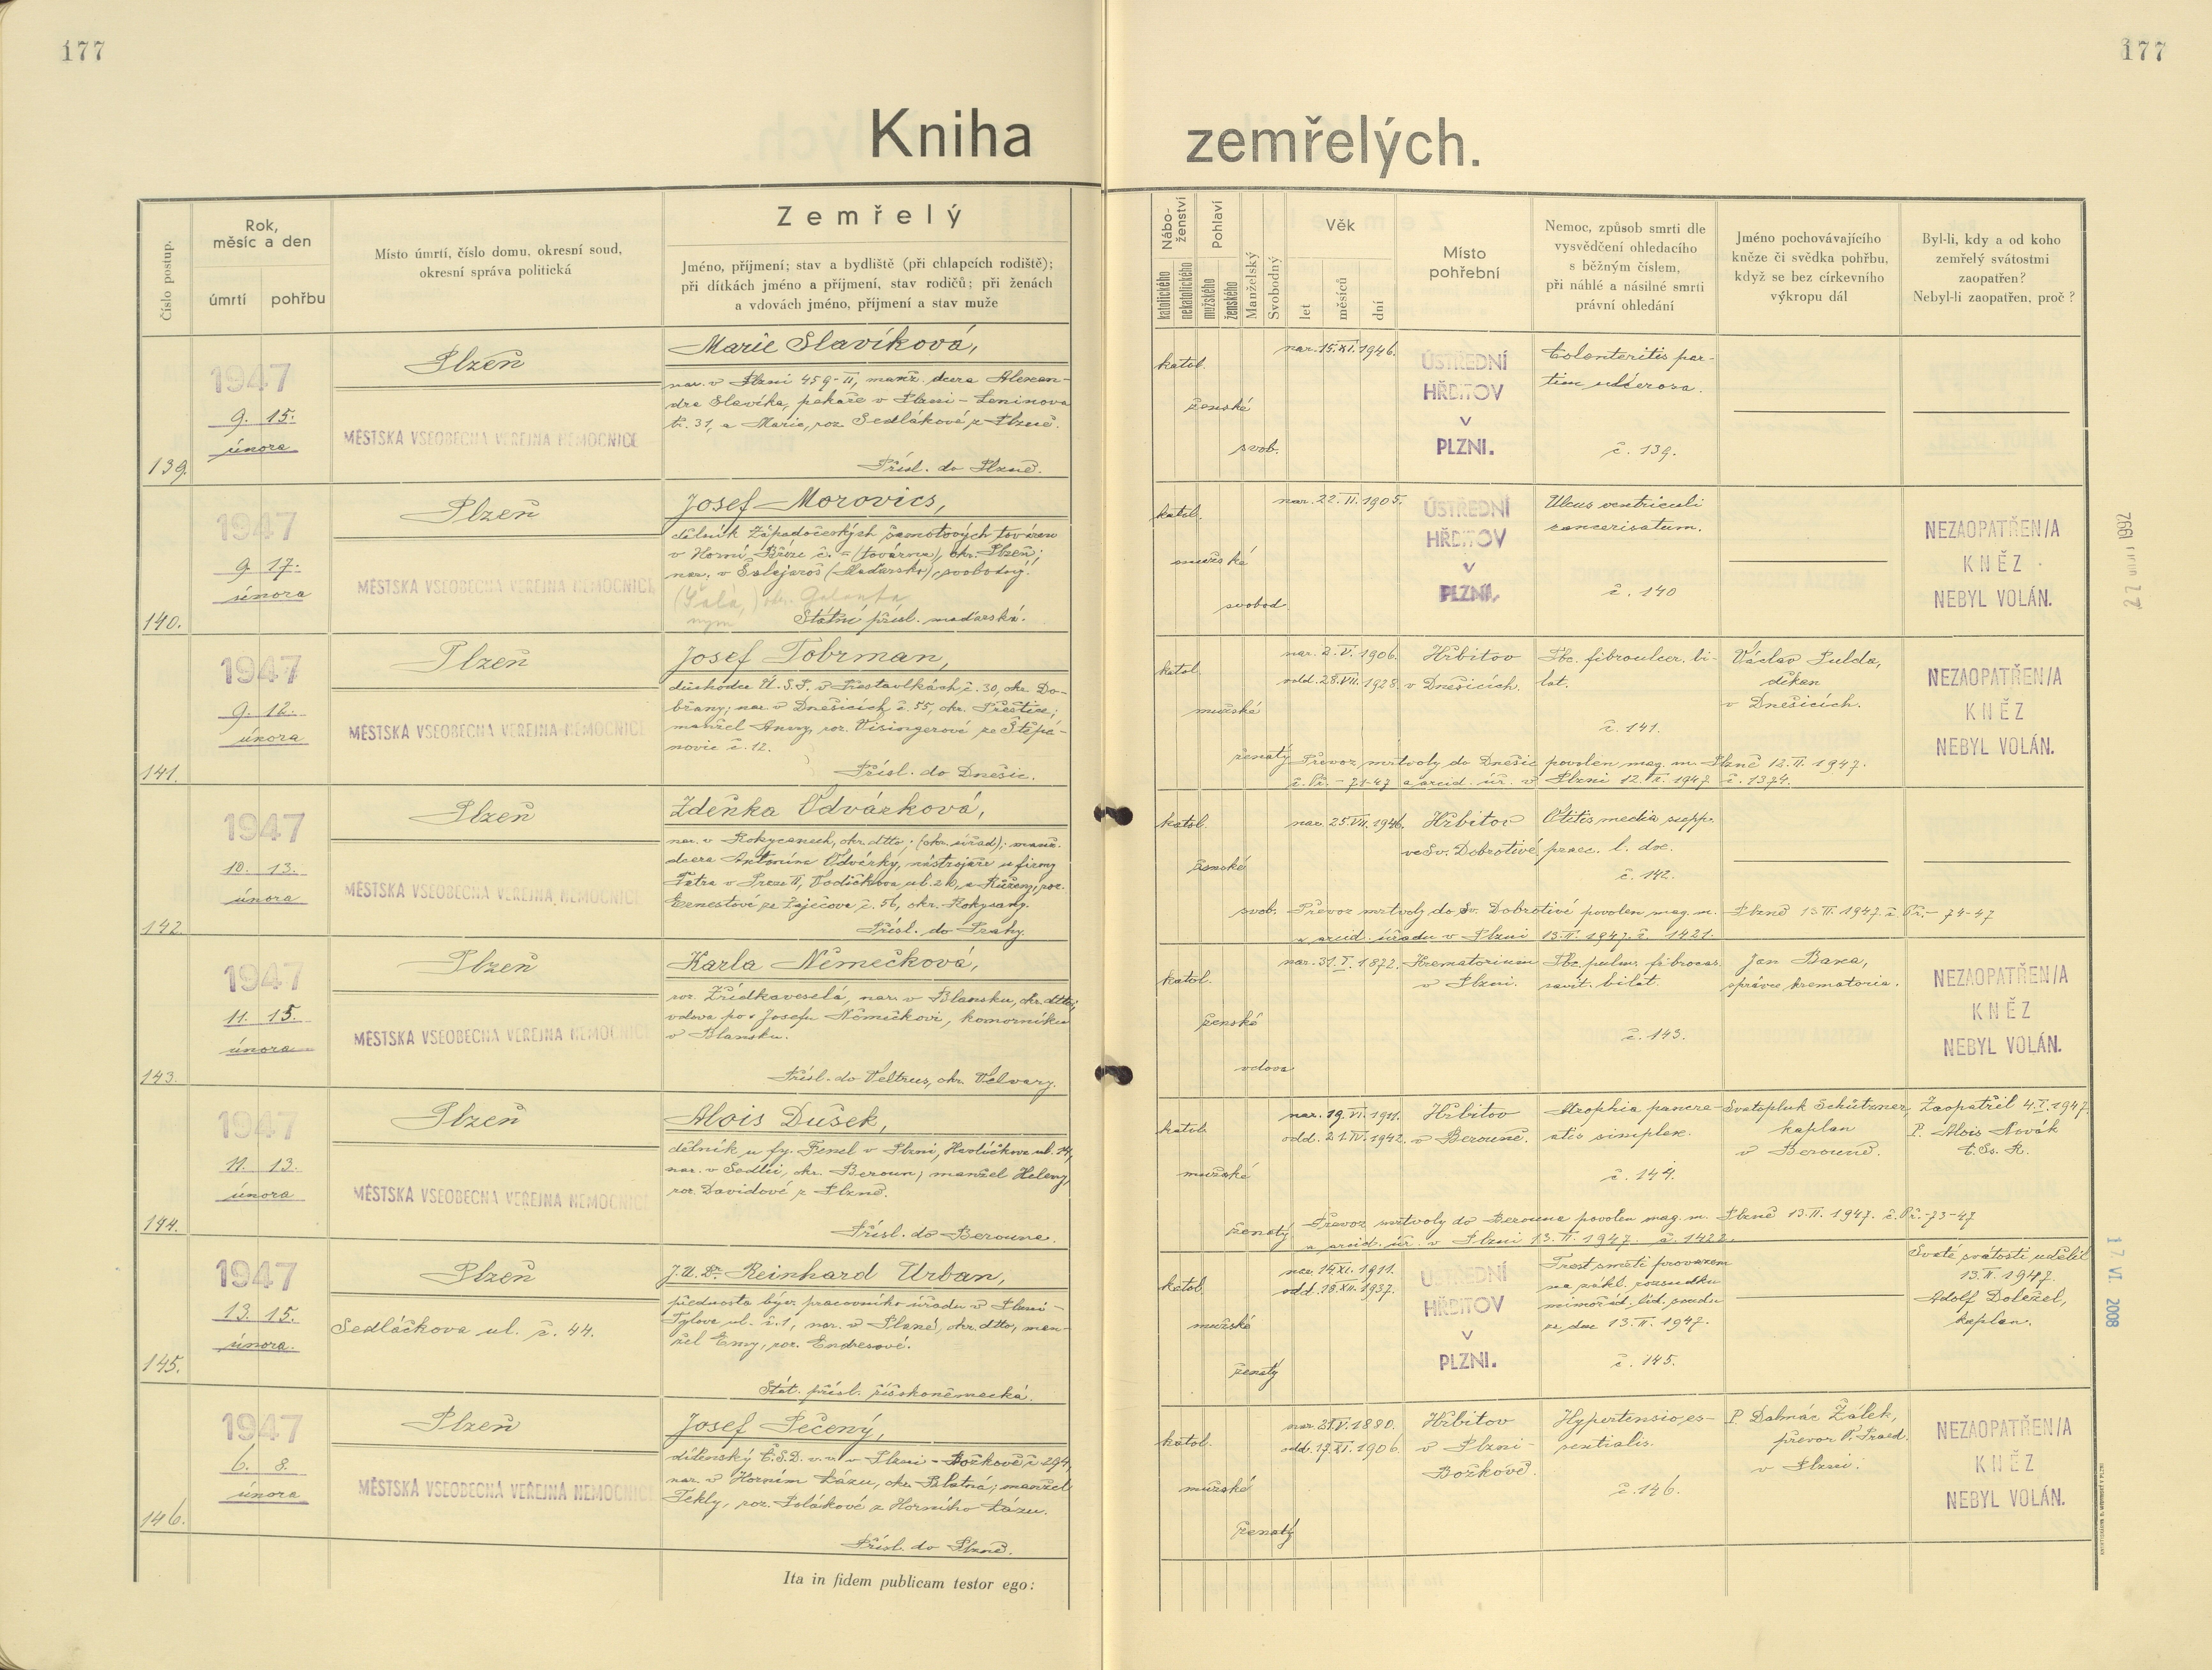 177
177
Kniha zemřelých.
Číslo postup.
Rok,
měsíc a den
úmrtí
pohřbu
Místo úmrtí, číslo domu, okresní soud,
okresní správa politická
Zemřelý
Jméno, příjmení; stav a bydliště (při chlapcích rodiště);
při dítkách jméno a příjmení, stav rodičů; při ženách
a vdovách jméno, příjmení a stav muže
Nábo-
ženství
katolického
nekatolického
Pohlaví
mužského
ženského
Manželský
Svobodný
Věk
let
měsíců
dní
Místo
pohřební
Nemoc, způsob smrti dle
vysvědčení ohledacího
s běžným číslem,
při náhlé a násilné smrti
právní ohledání
Jméno pochovávajícího
kněze či svědka pohřbu,
když se bez církevního
výkropu dál
Byl-li, kdy a od koho
zemřelý svátostmi
zaopatřen?
Nebyl-li zaopatřen, proč?
139.
1947
9. 15.
února
Plzeň
MĚSTSKÁ VŠEOBECNÁ VEŘEJNÁ NEMOCNICE
Marie Slavíková,
nar. v Plzni 459-II, manž. dcera Alexan-
dra Slavíka, pekaře v Plzni - Leninova
tř. 31, a Marie, roz. Sedlákové z Plzně.
Přísl. do Plzně.
katol.
ženské
svob.
nar. 15. XI. 1946.
ÚSTŘEDNÍ
HŘBITOV
V
PLZNI.
Colonteritis par-
tim ulcerosa.
č. 139.
140.
1947
9. 17.
února
Plzeň
MĚSTSKÁ VŠEOBECNÁ VEŘEJNÁ NEMOCNICE
Josef Morovics,
dělník Západočeských šamotových továren
v Horní Bříze č. - (továrna), okr. Plzeň;
nar. v Šalejaroš (Maďarsko), svobodný.
(Šala,) okr. Galanta
Státní přísl. maďarská.
katol.
mužské
svobod.
nar. 22. II. 1905.
ÚSTŘEDNÍ
HŘBITOV
V
PLZNI.
Ulcus ventriculi
cancerisatum.
č. 140
NEZAOPATŘEN/A
KNĚZ
NEBYL VOLÁN.
141.
1947
9. 12.
února
Plzeň
MĚSTSKÁ VŠEOBECNÁ VEŘEJNÁ NEMOCNICE
Josef Tobrman,
důchodce Ú.S.P. v Přestavlkách č. 30, okr. Do-
břany; nar. v Dnešicích č. 55, okr. Přeštice;
manžel Anny, roz. Visingerové ze Štěpá-
novic č. 12.
Přísl. do Dnešic.
katol.
mužské
ženatý
nar. 2. V. 1906.
odd. 28. VII. 1928.
Hřbitov
v Dnešicích.
Tbc. fibroulcer. bi-
lat.
č. 141.
Václav Pulda,
děkan
v Dnešicích.
NEZAOPATŘEN/A
KNĚZ
NEBYL VOLÁN.
Převoz mrtvoly do Dnešic povolen mag. m. Plzně 12. II. 1947.
č. Př. - 71-47 a arcid. úř. v Plzni 12. II. 1947 č. 1374.
142.
1947
10. 13.
února
Plzeň
MĚSTSKÁ VŠEOBECNÁ VEŘEJNÁ NEMOCNICE
Zdeňka Odvárková,
nar. v Rokycanech, okr. dtto, (okr. úřad); manž.
dcera Antonína Odvárky, nástrojaře u firmy
Tatra v Praze II, Vodičkova ul. 20, a Růženy, roz.
Ernestové ze Zaječova č. 56, okr. Rokycany.
Přísl. do Prahy.
katol.
ženské
svob.
nar. 25. VII. 1946.
Hřbitov
ve Sv. Dobrotivé
Otitis media supp.
praec. l. dx.
č. 142.
Převoz mrtvoly do Sv. Dobrotivé povolen mag. m. Plzně 13. II. 1947 č. Př. - 74-47
a arcid. úřadu v Plzni 13. II. 1947. č. 1421.
143.
1947
11. 15.
února
Plzeň
MĚSTSKÁ VŠEOBECNÁ VEŘEJNÁ NEMOCNICE
Karla Němečková,
roz. Zřídkaveselá, nar. v Blansku, okr. dtto,
vdova po Josefu Němečkovi, komorníku
v Blansku.
Přísl. do Veltrus, okr. Velvary.
katol.
ženské
vdova
nar. 31. I. 1872.
Krematorium
v Plzni.
Tbc. pulm. fibrocas.
cavit. bilat.
č. 143.
Jan Baxa,
správce krematoria.
NEZAOPATŘEN/A
KNĚZ
NEBYL VOLÁN.
144.
1947
11. 13.
února
Plzeň
MĚSTSKÁ VŠEOBECNÁ VEŘEJNÁ NEMOCNICE
Alois Dušek,
dělník u fy. Fenel v Plzni, Havlíčkova ul. 14,
nar. v Sedlci, okr. Beroun; manžel Heleny,
roz. Davidové z Plzně.
Přísl. do Berouna.
katol.
mužské
ženatý
nar. 19. VI. 1911.
odd. 21. IV. 1942.
Hřbitov
v Berouně.
Atrophia pancre-
atis simplex.
č. 144.
Svatopluk Schützner,
kaplan
v Berouně.
Zaopatřil 4. I. 1947.
P. Alois Novák
C. Ss. R.
Převoz mrtvoly do Berouna povolen mag. m. Plzně 13. II. 1947. č. Př. - 73-47
a arcid. úř. v Plzni 13. II. 1947. č. 1422.
145.
1947
13. 15.
února.
Plzeň
Sedláčkova ul. č. 44.
J.U.Dr. Reinhard Urban,
přednosta býv. pracovního úřadu v Plzni -
Tylova ul. č. 1, nar. v Plané, okr. dtto, man-
žel Emy, roz. Endresové.
Stát. přísl. říšskoněmecká.
katol.
mužské
ženatý
nar. 14. XI. 1911.
odd. 18. XII. 1937.
ÚSTŘEDNÍ
HŘBITOV
V
PLZNI.
Trest smrti provazem
na zákl. rozsudku
mimořád. lid. soudu
ze dne 13. II. 1947.
č. 145.
Svaté svátosti udělil
13. II. 1947.
Adolf Doležel,
kaplan.
146.
1947
6. 8.
února
Plzeň
MĚSTSKÁ VŠEOBECNÁ VEŘEJNÁ NEMOCNICE
Josef Pečený,
dílenský Č.S.D. v. v. v Plzni - Božkově č. 294,
nar. v Horním Lázu, okr. Blatná; manžel
Tekly, roz. Polákové z Horního Lázu.
Přísl. do Plzně.
katol.
mužské
ženatý
1880.
1906.
Hřbitov
v Plzni -
Božkově.
Hypertensio es-
sentialis.
č. 146.
P. Dalmác Žálek,
převor O. Praed.
v Plzni.
NEZAOPATŘEN/A
KNĚZ
NEBYL VOLÁN.
Ita in fidem publicam testor ego:
17. VI. 2008